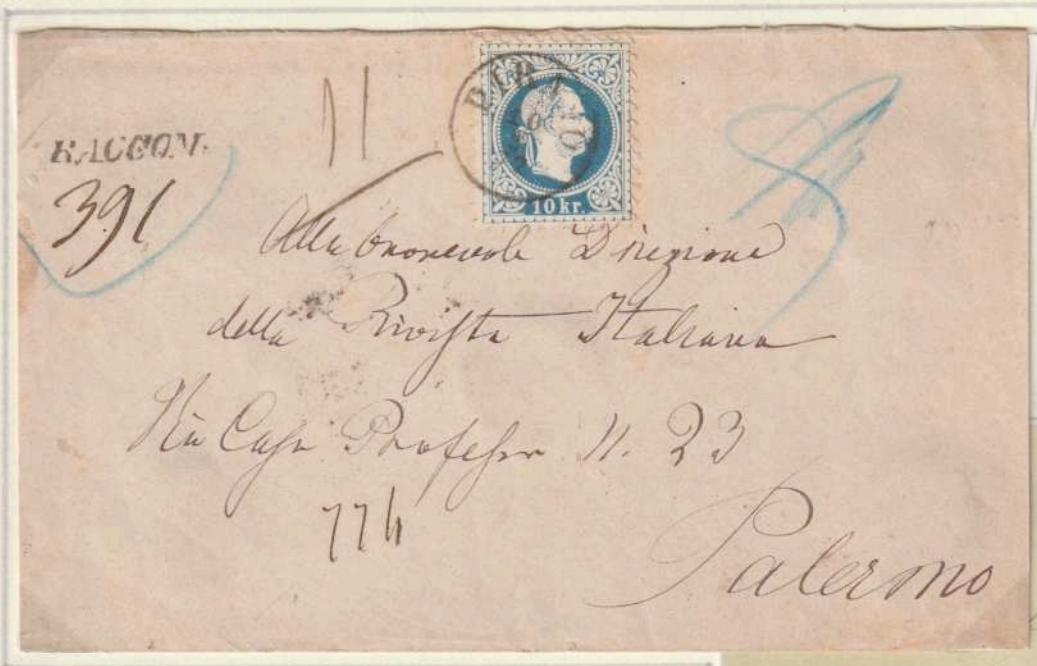 RACCOM.
391
11
10 kr.
Alla Onorevole Direzione
della Rivista Italiana
Via Casa Professa N. 23
774
Palermo